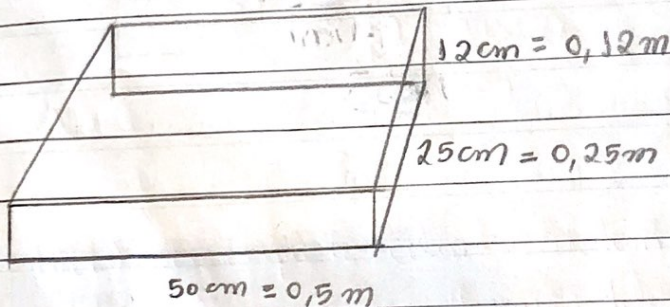 12cm = 0,12m
25cm = 0,25m
50cm = 0,5m